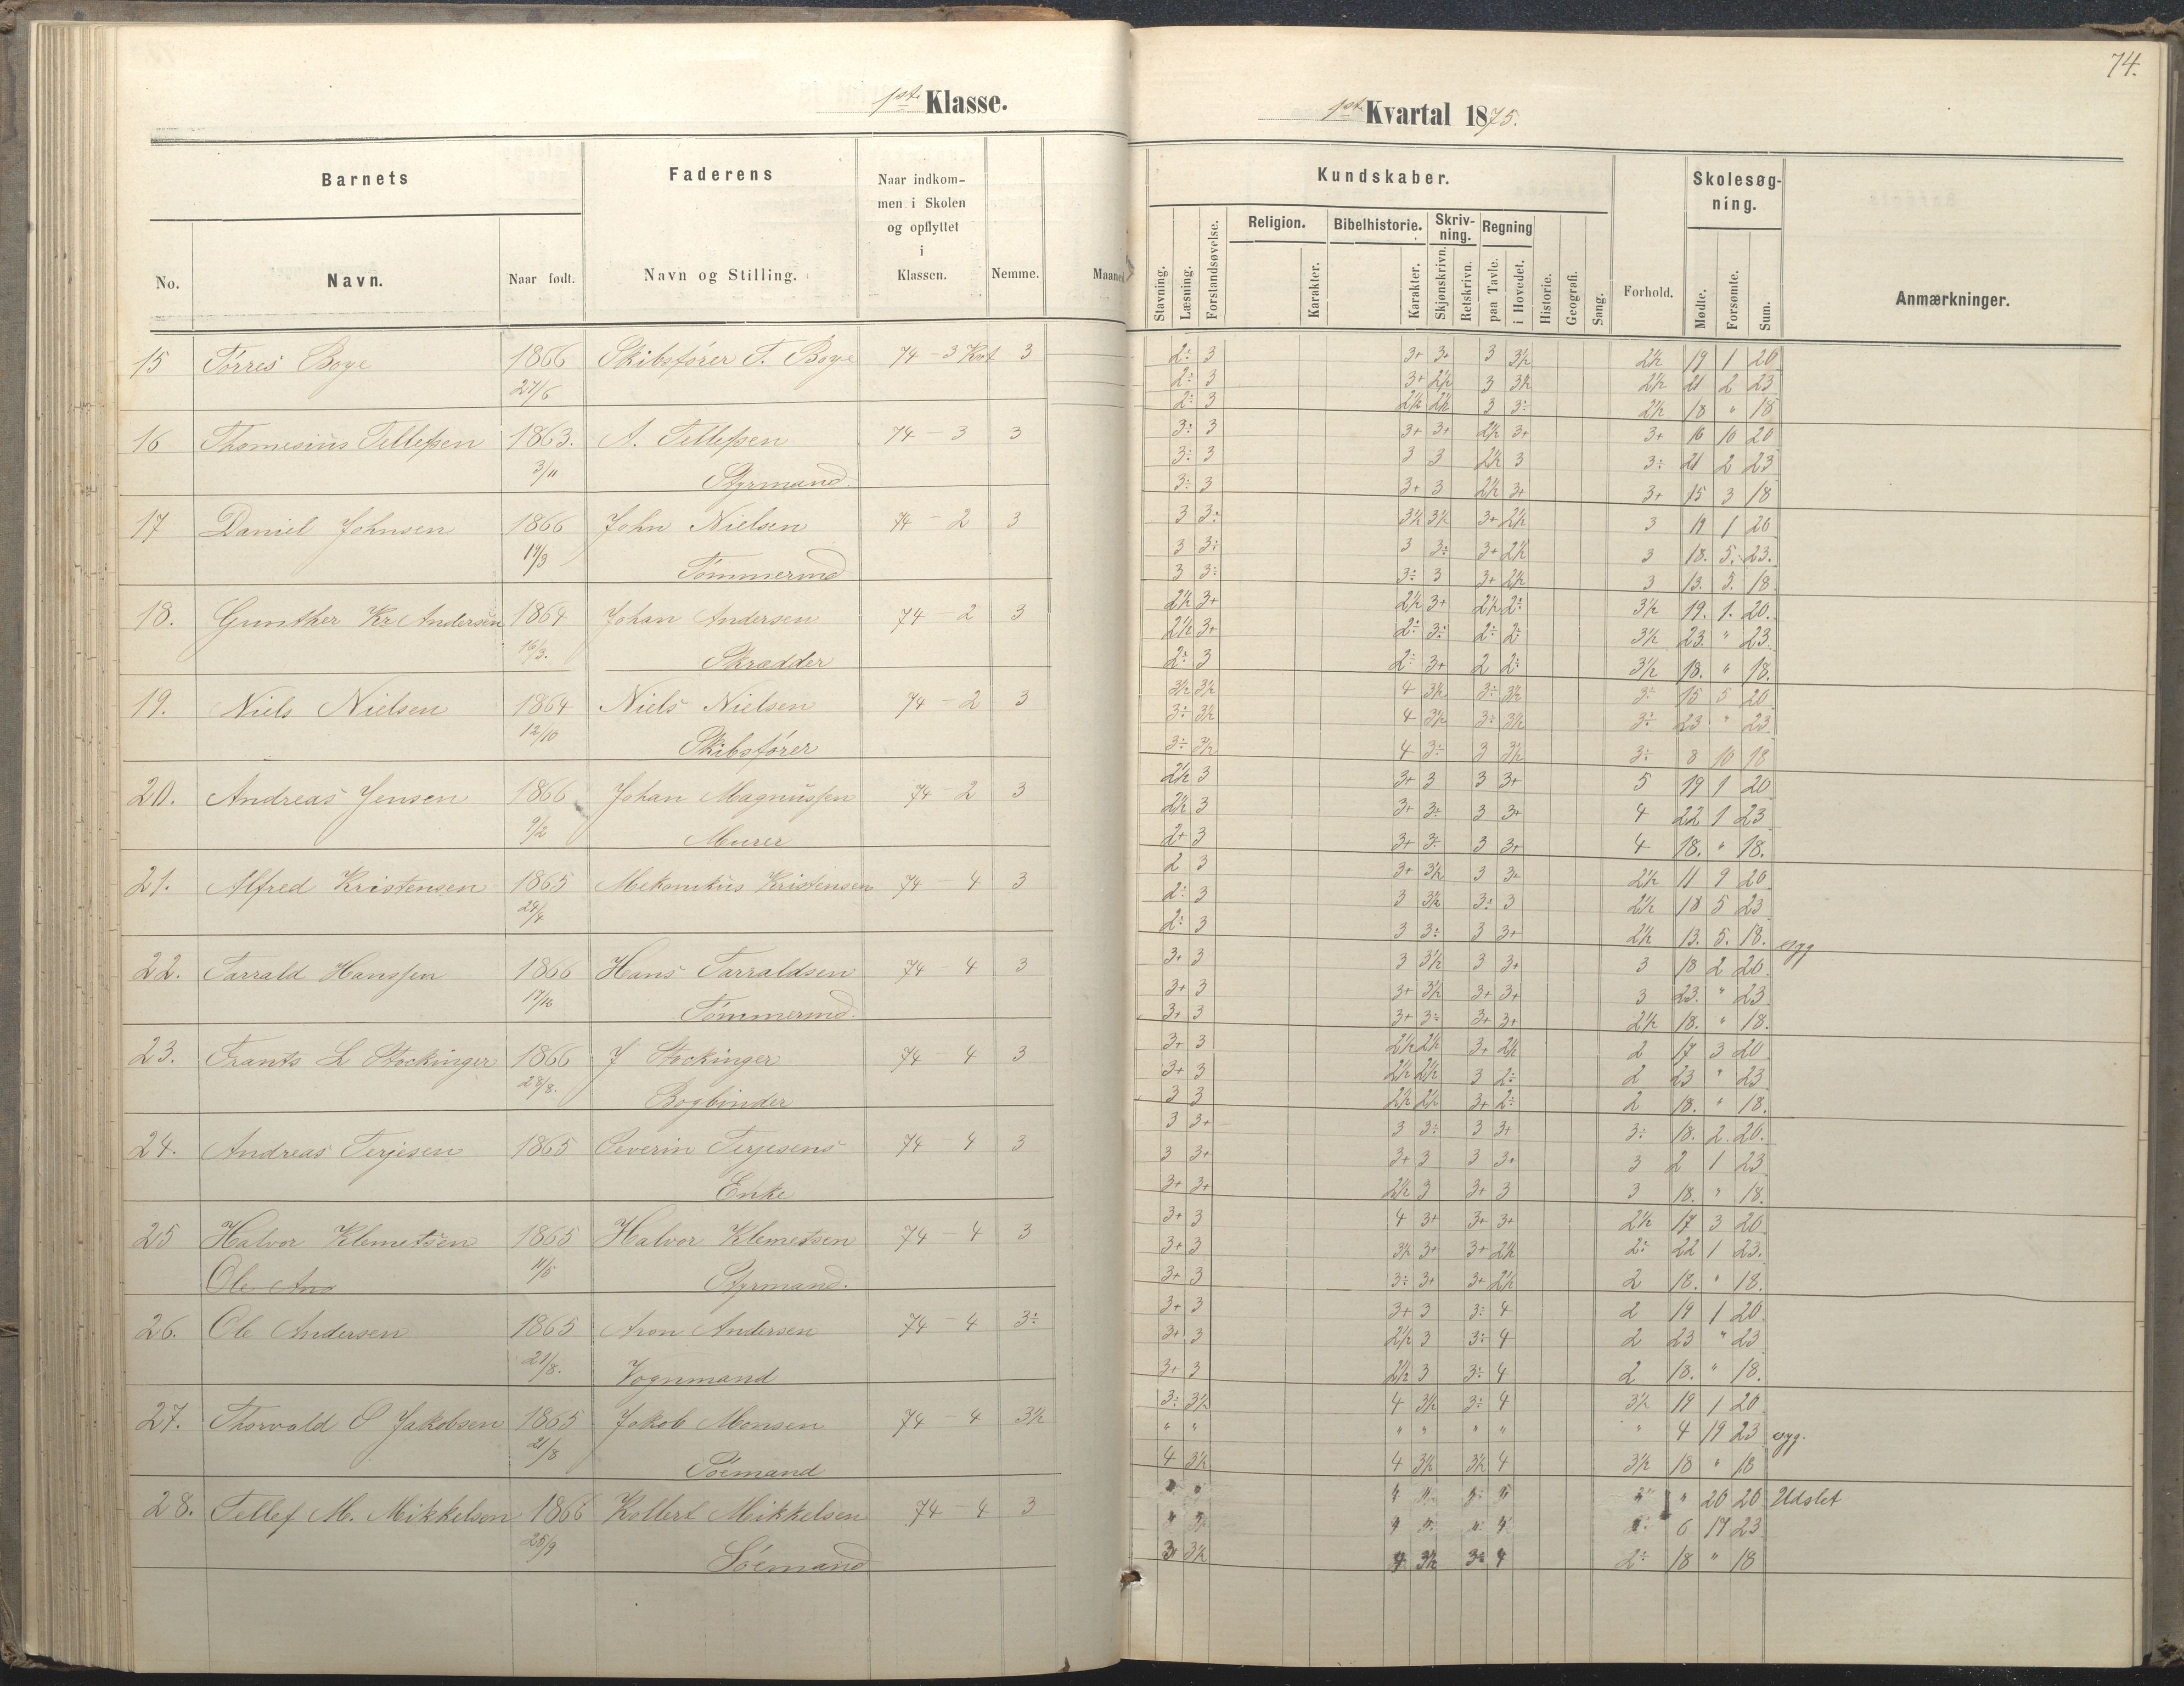 1st Klasse.
Barnets
Faderens
Naar indkom-
men i Skolen
og opflyttet
i
Klassen.
No.
Navn.
Naar født.
Navn og Stilling.
Nemme.
Maaned
15 Törres Boye 1866 Skibsfører T. Boye 74 - 3 Kvt 3
27/6
16 Thomesius Tellefsen 1863. A. Tellefsen 74 - 3 3
3/11 Styrmand.
17 Daniel Johnsen 1866 John Nielsen 74 - 2 3
19/3 Tömmermd
18. Gunther Kr. Andersen 1864 Johan Andersen 74 2 3
16/3. Skrædder
19. Niels Nielsen 1864 Niels Nielsen 74 - 2 3
12/10 Skibsfører
20. Andreas Jensen 1866 Johan Magnussen 74 - 2 3
9/2 Murer
21. Alfred Kristensen 1865 Mekanikus Kristensen 74 - 4 3
24/4
22. Tarrald Hanssen 1866 Hans Tarraldsen 74 4 3
17/10 Tömmermd.
23. Frants L Stockinger 1866 J Stockinger 74 - 4 3
28/8. Bogbinder
24. Andreas Terjesen 1865 Severin Terjesens 74 4 3
Enke
25 Halvor Klemetsen 1865 Halvor Klemetsen 74 - 4 3
Ole And 11/5 Styrmand.
26. Ole Andersen 1865 Aron Andersen 74 - 4 3÷
21/8. Vognmand
27. Thorvald O Jakobsen 1865 Jakob Monsen 74 - 4 3½
21/8 Sömand
28. Tellef M. Mikkelsen 1866 Kollert Mikkelsen 74 - 4 3
25/9 Söemand
74.
1st Kvartal 1875.
Kundskaber.
Skolesøg-
ning.
Stavning.
Læsning.
Forstandsøvelse.
Religion.
Karakter.
Bibelhistorie.
Karakter.
Skriv-
ning.
Skjønskrivn.
Retskrivn.
Regning
paa Tavle.
i Hovedet.
Historie.
Geografi.
Sang.
Forhold.
Mødte.
Forsømte.
Sum.
Anmærkninger.
2÷ 3 3+ 3+ 3 3½ 2½ 19 1 20
2÷ 3 3+ 2½ 3 3½ 2½ 21 2 23
2÷ 3 2½ 2½ 3 3÷ 2½ 18 " 18
3÷ 3 3+ 3+ 2½ 3+ 3+ 10 10 20
3÷ 3 3 3 2½ 3 3÷ 21 2 23
3÷ 3 3+ 3 2½ 3+ 3+ 15 3 18
3 3÷ 3½ 3½ 3+ 2½ 3 19 1 20
3 3÷ 3 3÷ 3+ 2½ 3 18. 5. 23.
3 3÷ 3÷ 3 3+ 2½ 3 13. 5. 18.
2½ 3+ 2½ 3+ 2½ 2÷ 3½ 19. 1. 20.
2½ 3+ 2÷ 3÷ 2÷ 2÷ 3½ 23. " 23.
2÷ 3 2÷ 3+ 2 2÷ 3½ 18. " 18.
3½ 3½ 4 3½ 3÷ 3½ 3÷ 15 5 20
3÷ 3½ 4 3½ 3÷ 3½ 3÷ 23 " 23
3÷ 3½ 4 3÷ 3 3½ 3÷ 8 10 18
2½ 3 3+ 3 3 3+ 5 19 1 20
2½ 3 3+ 3÷ 3 3+ 4 22 1 23
2+ 3 3+ 3÷ 3 3+ 4 18. " 18.
2 3 3+ 3½ 3 3+ 2½ 11 9 20
2÷ 3 3 3½ 3÷ 3 2½ 18 5 23
2÷ 3 3 3÷ 3 3+ 2½ 13. 5. 18. syg
3+ 3 3 3½ 3 3+ 3 18 2 20
3+ 3 3+ 3½ 3+ 3+ 3 23. " 23
3+ 3 3+ 3÷ 3+ 3+ 2½ 18. " 18.
3+ 3 2½ 2½ 3+ 2½ 2 17 3 20
3+ 3 2½ 2½ 3 2÷ 2 23 " 23
3 3 2½ 2½ 3+ 2÷ 2 18. " 18.
3 3+ 3 3÷ 3 3+ 3÷ 18. 2. 20.
3 3+ 3+ 3 3 3+ 3 2 1 23
3+ 3+ 2½ 3 3+ 3 3 18. " 18.
3+ 3 4 3+ 3+ 3+ 2½ 17 3 20
3+ 3 3½ 3+ 3+ 2½ 2÷ 22 1 23.
3+ 3 3÷ 3+ 3+ 2½ 2 18. " 18.
3+ 3 3+ 3 3÷ 4 2 19 1 20
3+ 3 2½ 3 3÷ 4 2 23 " 23
3+ 3 2½ 3 3÷ 4 2 18. " 18.
3÷ 3½ 4 3½ 3÷ 4 3½ 19 1 20
" " " " " " " 4 19 23 syg.
4 3½ 4 3½ 3½ 4 3½ 18 " 18
" 20 20 Udslet
6 17 23
3 3½ 4 3½ 3÷ 4 2÷ 18 " 18